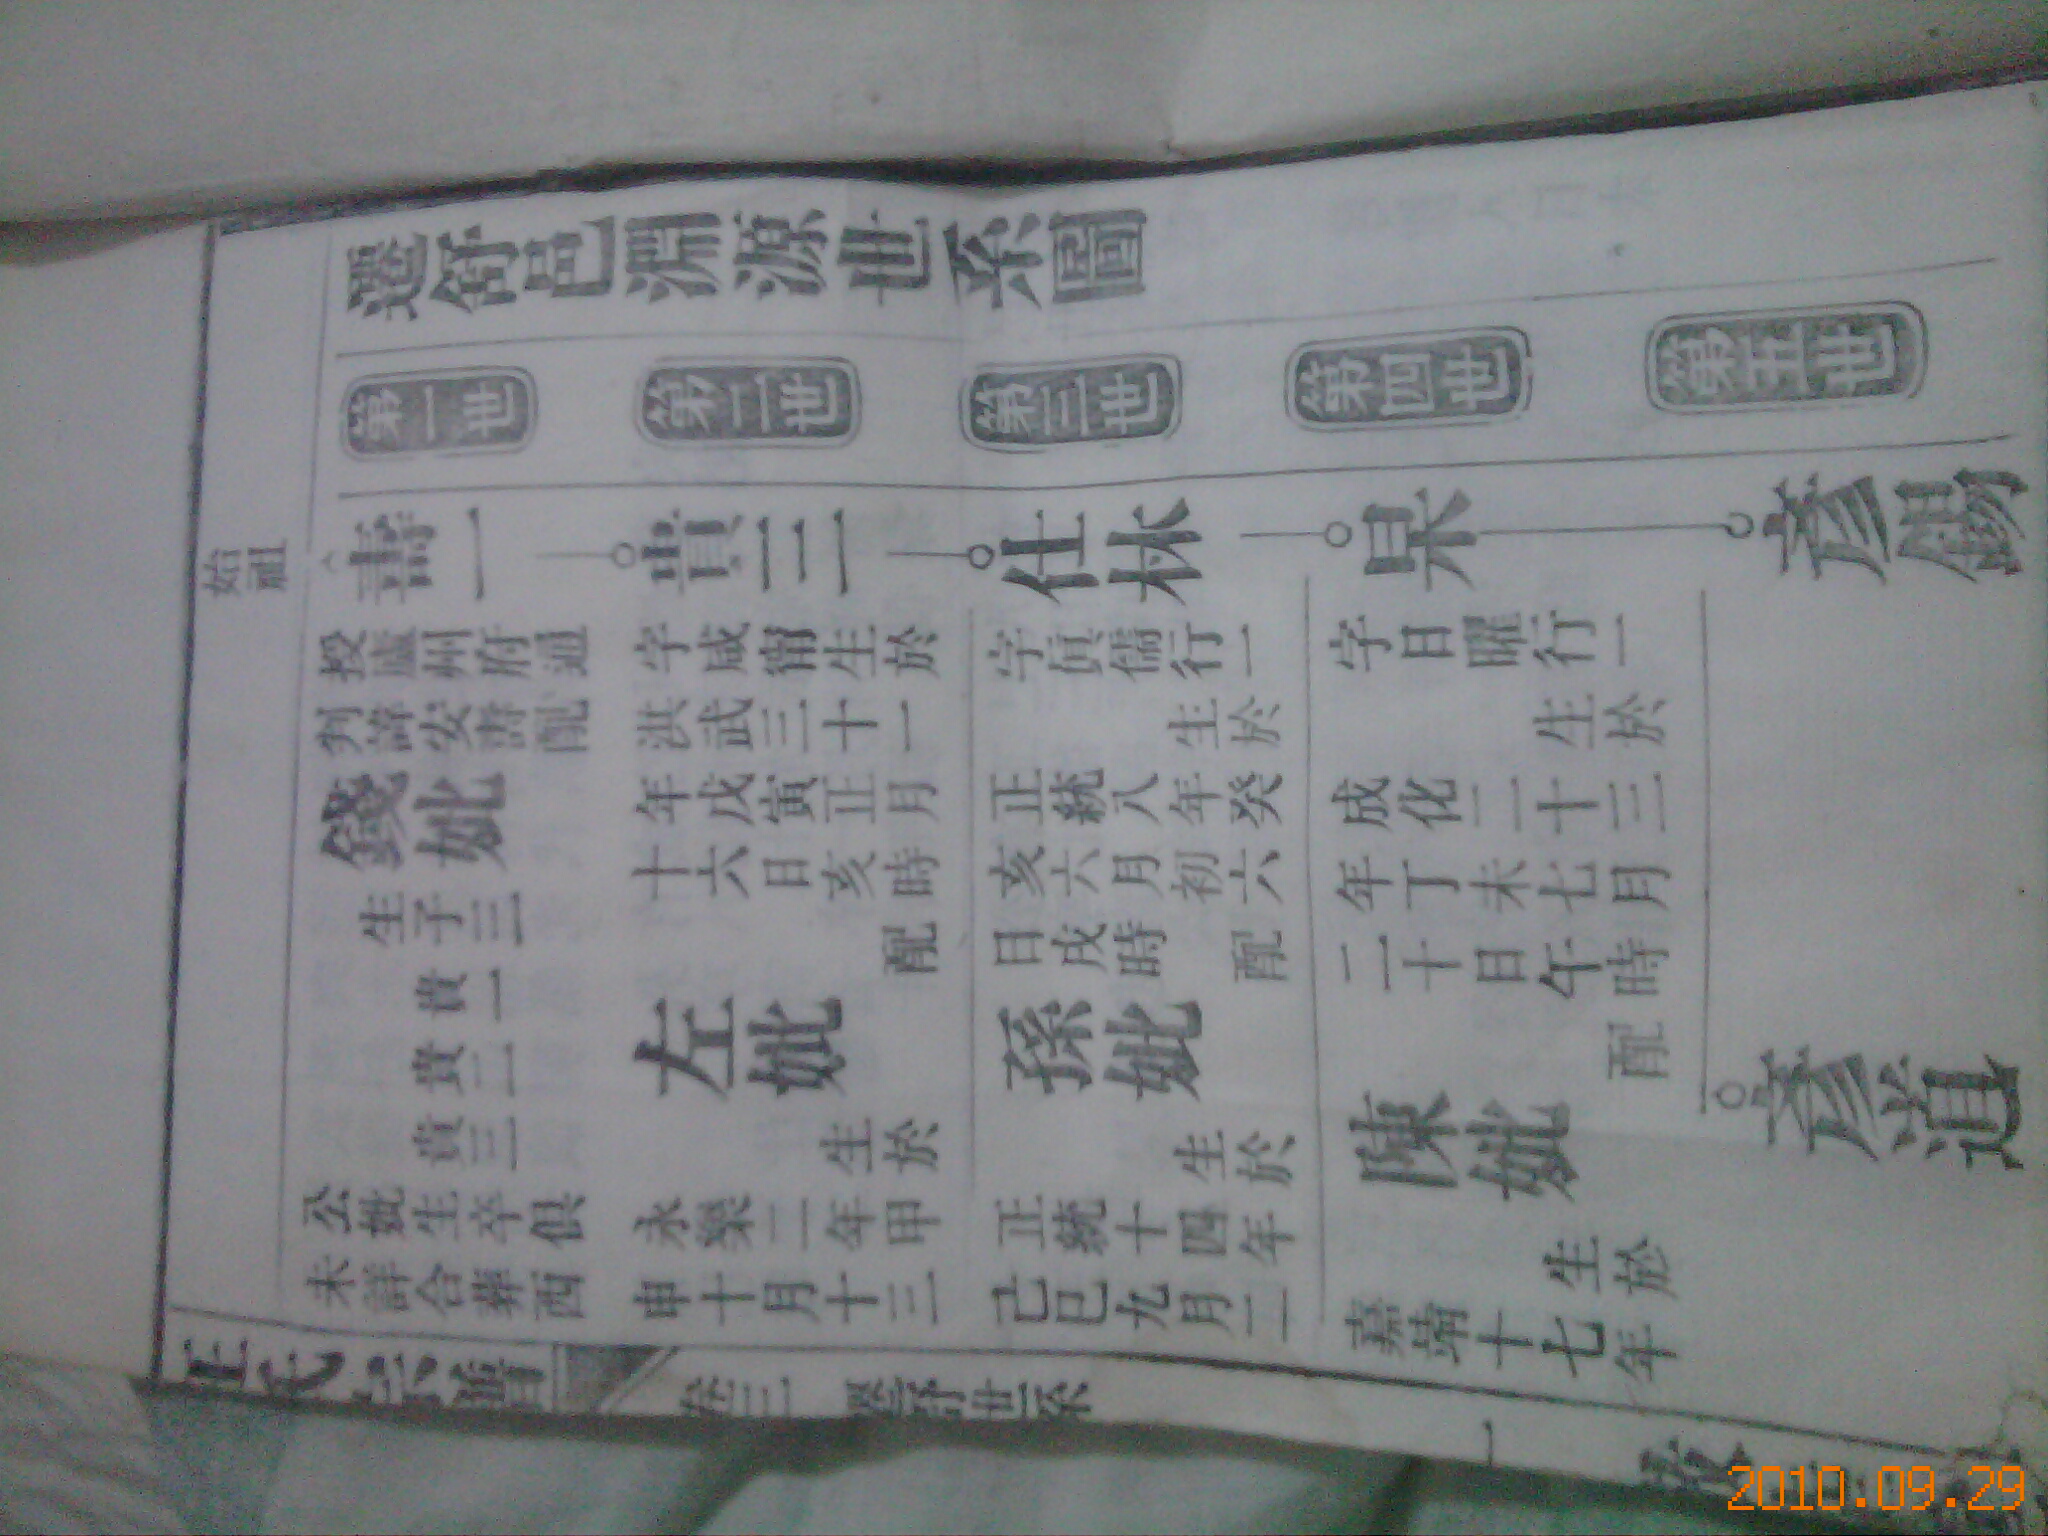 遷舒邑淵源世系圖
第一世
第二世
第三世
第四世
第五世
始祖
壽一
授廬州府通
判諱安壽配
錢妣
生子三
貴一
貴二
貴三
公妣生卒俱
未詳合葬西
貴三
字咸甯生於
洪武三十一
年戊寅正月
十六日亥時
配
左妣
生於
永樂二年甲
申十月十三
仕林
字眞儒行一
生於
正統八年癸
亥六月初六
日戌時配
孫妣
生於
正統十四年
己巳九月二
杲
字日曜行一
生於
成化二十三
年丁未七月
二十日午時
配
陳妣
生於
嘉靖十七年
彥錫
彥道
氏宗譜
卷三 遷舒世系
一
2010.09.29